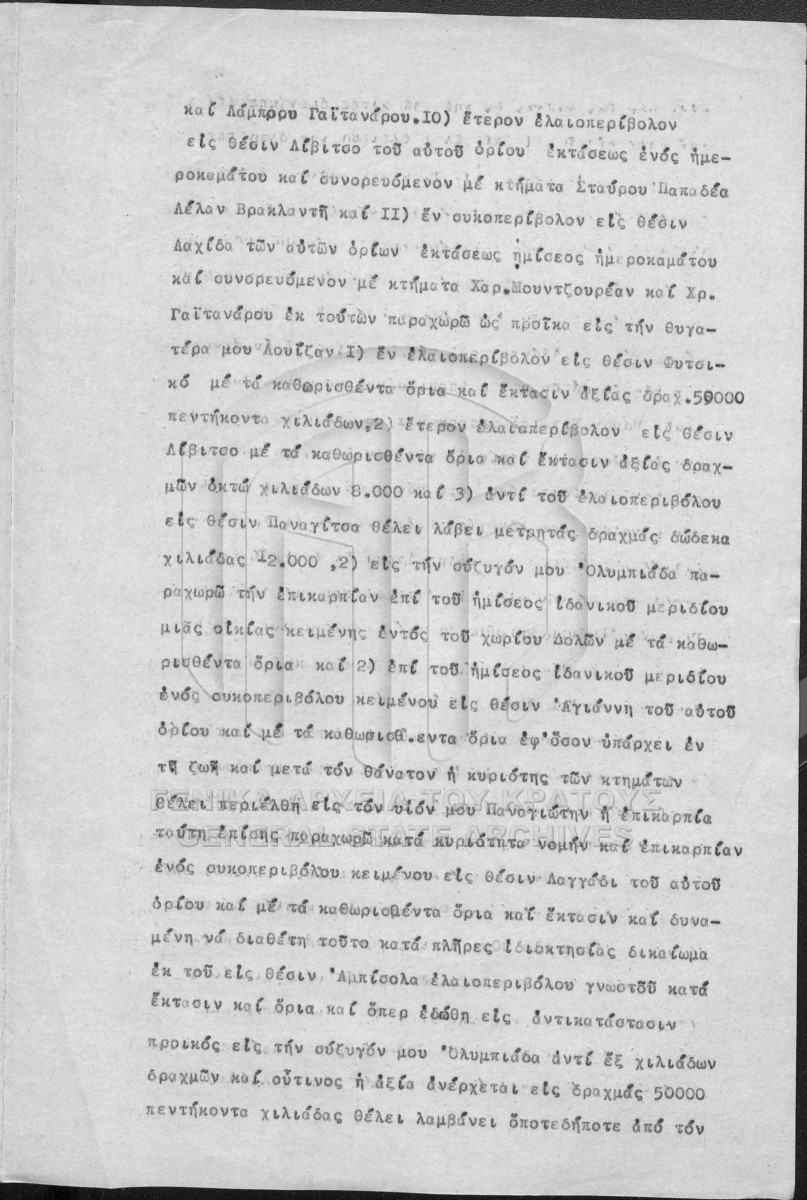 καί Λάμπρου Γαϊτανάρου.IO) ἕτερον ἐλαιοπερίβολον
εἰς θέσιν Λίβιτσο τοῦ αὐτοῦ ὁρίου ἐκτάσεως ἑνός ἡμε-
ροκαμάτου καί συνορευόμενον μέ κτήματα Σταύρου Παπαδέα
Λέλαν Βρακλαντῆ καί II) ἕν συκοπερίβολον εἰς θέσιν
Λαχίδα τῶν αὐτῶν ὁρίων ἐκτάσεως ἡμίσεος ἡμεροκαμάτου
καί συνορευόμενον μέ κτήματα Χαρ.Μουντζουρέαν καί Χρ.
Γαϊτανάρου ἐκ τούτων παραχωρῶ ὡς προῖκα εἰς τήν θυγα-
τέρα μου Λουΐζαν I) ἕν ἐλαιοπερίβολον εἰς θέσιν Φυτσι-
κό μέ τά καθωρισθέντα ὅρια καί ἔκτασιν ἀξίας δραχ.50000
πεντήκοντα χιλιάδων,2) ἕτερον ἐλαιοπερίβολον εἰς θέσιν
Λίβιτσο μέ τά καθωρισθέντα ὅρια καί ἔκτασιν ἀξίας δραχ-
μῶν ὀκτώ χιλιάδων 8.000 καί 3) ἀντί τοῦ ἐλαιοπεριβόλου
εἰς θέσιν Παναγίτσα θέλει λάβει μετρητάς δραχμάς δώδεκα
χιλιάδας I2.000 ,2) εἰς τήν σύζυγόν μου Ὀλυμπιάδα πα-
ραχωρῶ τήν ἐπικαρπίαν ἐπί τοῦ ἡμίσεος ἰδανικοῦ μεριδίου
μιᾶς οἰκίας κειμένης ἐντός τοῦ χωρίου Δολῶν μέ τά καθω-
ρισθέντα ὅρια καί 2) ἐπί τοῦ ἡμίσεος ἰδανικοῦ μεριδίου
ἑνός συκοπεριβόλου κειμένου εἰς θέσιν Ἁγιάννη τοῦ αὐτοῦ
ὁρίου καί μέ τά καθωρισθ.εντα ὅρια ἐφ'ὅσον ὑπάρχει ἐν
τῆ ζωῆ καί μετά τόν θάνατον ἡ κυριότης τῶν κτημάτων
θέλει περιέλθη εἰς τόν υἱόν μου Παναγιώτην ἡ ἐπικαρπία
ταύτη ἐπίσης παραχωρῶ κατά κυριότητα νομήν καί ἐπικαρπίαν
ἑνός συκοπεριβόλου κειμένου εἰς θέσιν Λαγγάδι τοῦ αὐτοῦ
ὁρίου καί μέ τά καθωρισθέντα ὅρια καί ἔκτασιν καί δυνα-
μένη νά διαθέτη τοῦτο κατά πλῆρες ἰδιοκτησίας δικαίωμα
ἐκ τοῦ εἰς θέσιν Ἀμπίσολα ἐλαιοπεριβόλου γνωστοῦ κατά
ἔκτασιν καί ὅρια καί ὅπερ ἐδώθη εἰς ἀντικατάστασιν
προικός εἰς τήν σύζυγόν μου Ὀλυμπιάδα ἀντί ἕξ χιλιάδων
δραχμῶν καί οὗτινος ἡ ἀξία ἀνέρχεται εἰς δραχμάς 50000
πεντήκοντα χιλιάδας θέλει λαμβάνει ὁποτεδήποτε ἀπό τόν
ΓΕΝΙΚΑ ΑΡΧΕΙΑ ΤΟΥ ΚΡΑΤΟΥΣ
GENERAL STATE ARCHIVES